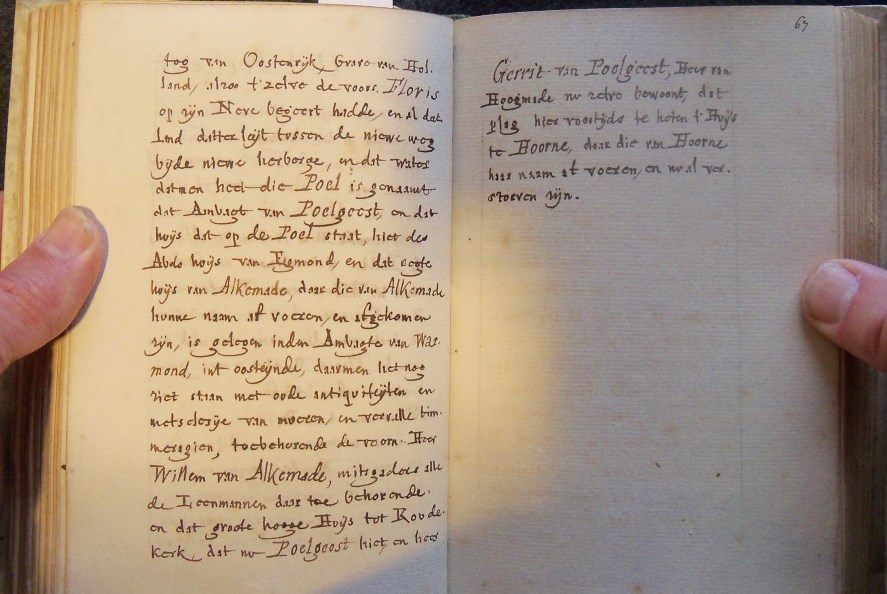 tog van Oostenrijk, Grave van Hol-
land, alzoo t'zelve de voors. Floris
op zijn Neve begeert hadde, en al dat
Land datter leijt tussen de niewe weg
bijde niewe herberge, en dat water
datmen heet die Poel is genaamt
dat Ambagt van Poelgeest, en dat
huijs dat op de Poel staat, hiet des
Abds huijs van Egmond, en dat regte
huijs van Alkemade, daar die van Alkemade
hunne naam af voeren, en afgekomen
zijn, is gelegen inden Ambagte van War-
mond, int oosteijnde, daarmen het nog
ziet staan met oude antiquiteijten en
metselerije van mueren, en vervalle tim-
meragien, toebehorende de voorn. Heer
Willem van Alkemade, mitsgaders alle
de Leenmannen daar toe behorende.
en dat groote hooge Huijs tot Koude-
kerk, dat nu Poelgeest hiet, en heer
67
Gerrit van Poelgeest, Heer van
Hoogmade nu zelve bewoont, dat
plag hier voortijds te heten t'Huijs
te Hoorne, daar die van Hoorne
haar naam af voeren, en nu al ver-
storven zijn.